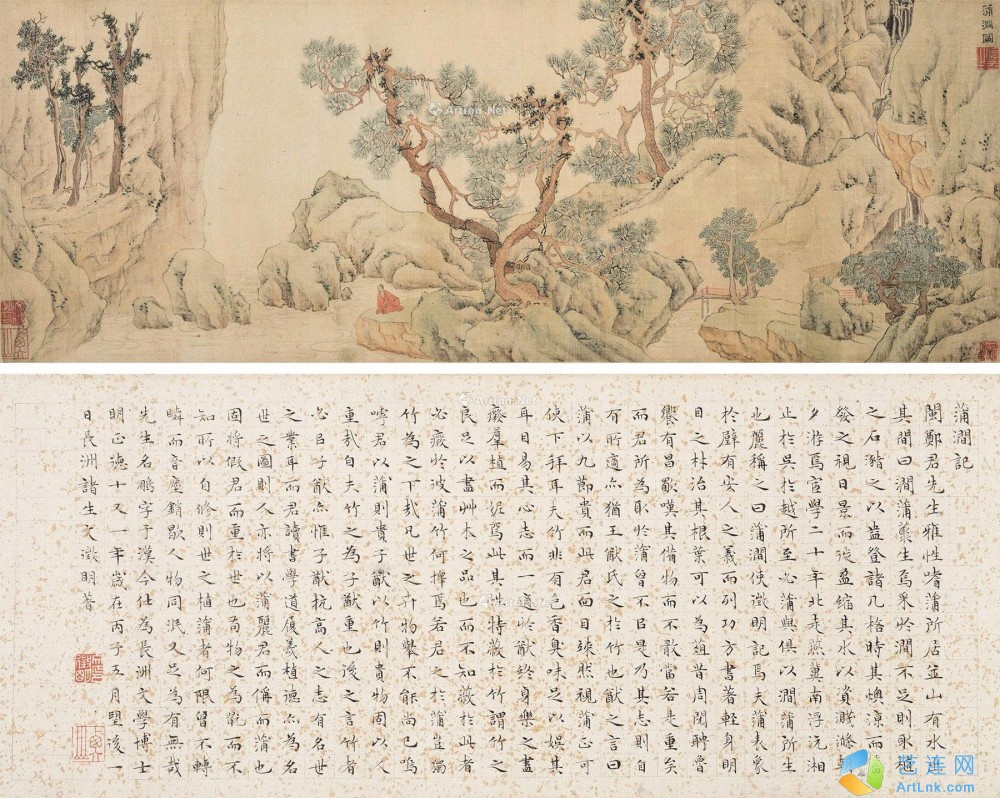 蒲澗圖
蒲澗記
閩鄭君先生雅性嗜蒲所居並山有水
其間曰澗蒲叢生焉采於澗不足則承
之石瀦之以盎登諸几格時其燠涼而
發之視日景而從盈縮其水以資滌朝
夕游焉宦學二十年北走燕冀南浮沅湘
止於吳於越所至必蒲與俱以澗蒲所生
也麗稱之曰蒲澗使澂明記焉夫蒲表象
於辟有安人之義而列功方書著輕身明
目之林治其根葉可以為菹昔周閱聘魯
饗有昌歜嘆其備物而不敢當若是重矣
而君所為取於蒲曾不㠯是乃其志則自
有所適亦猶王猷氏之於竹也猷之言曰
蒲以九節貴而此君面目竦然視蒲正可
使下拜耳夫竹非有色香臭味足以娛其
耳目易其心志而一適於猷終身樂之盡
癈羣植而焉此其性特於竹謂竹之
良足以盡艸木之品也而不知於此者
必癈於彼蒲竹何擇焉若君之於蒲豈獨
竹為之下哉凡世之卉物舉不能尚已嗚
嘑君以蒲則貴子猷以竹則貴物固以人
重哉自夫竹之為子猷重也後之言竹者
必㠯子猷亦惟子猷抗高人之志有名世
之業耳而君讀書學道履義植德亦為名
世之圖則人亦將以蒲麗君而偁而蒲也
固將假君而重於世也苟物之為翫而不
知所以自修則世之植蒲者何限曾不轉
瞬而音塵銷歇人物同泯又足為有無哉
先生名鵬字于漢今仕為長洲文學博士
明正德十又一年歲在丙子五月朢後一
日長洲諸生文徵明著
Artron.Net
艺连网
ArtLnk.com